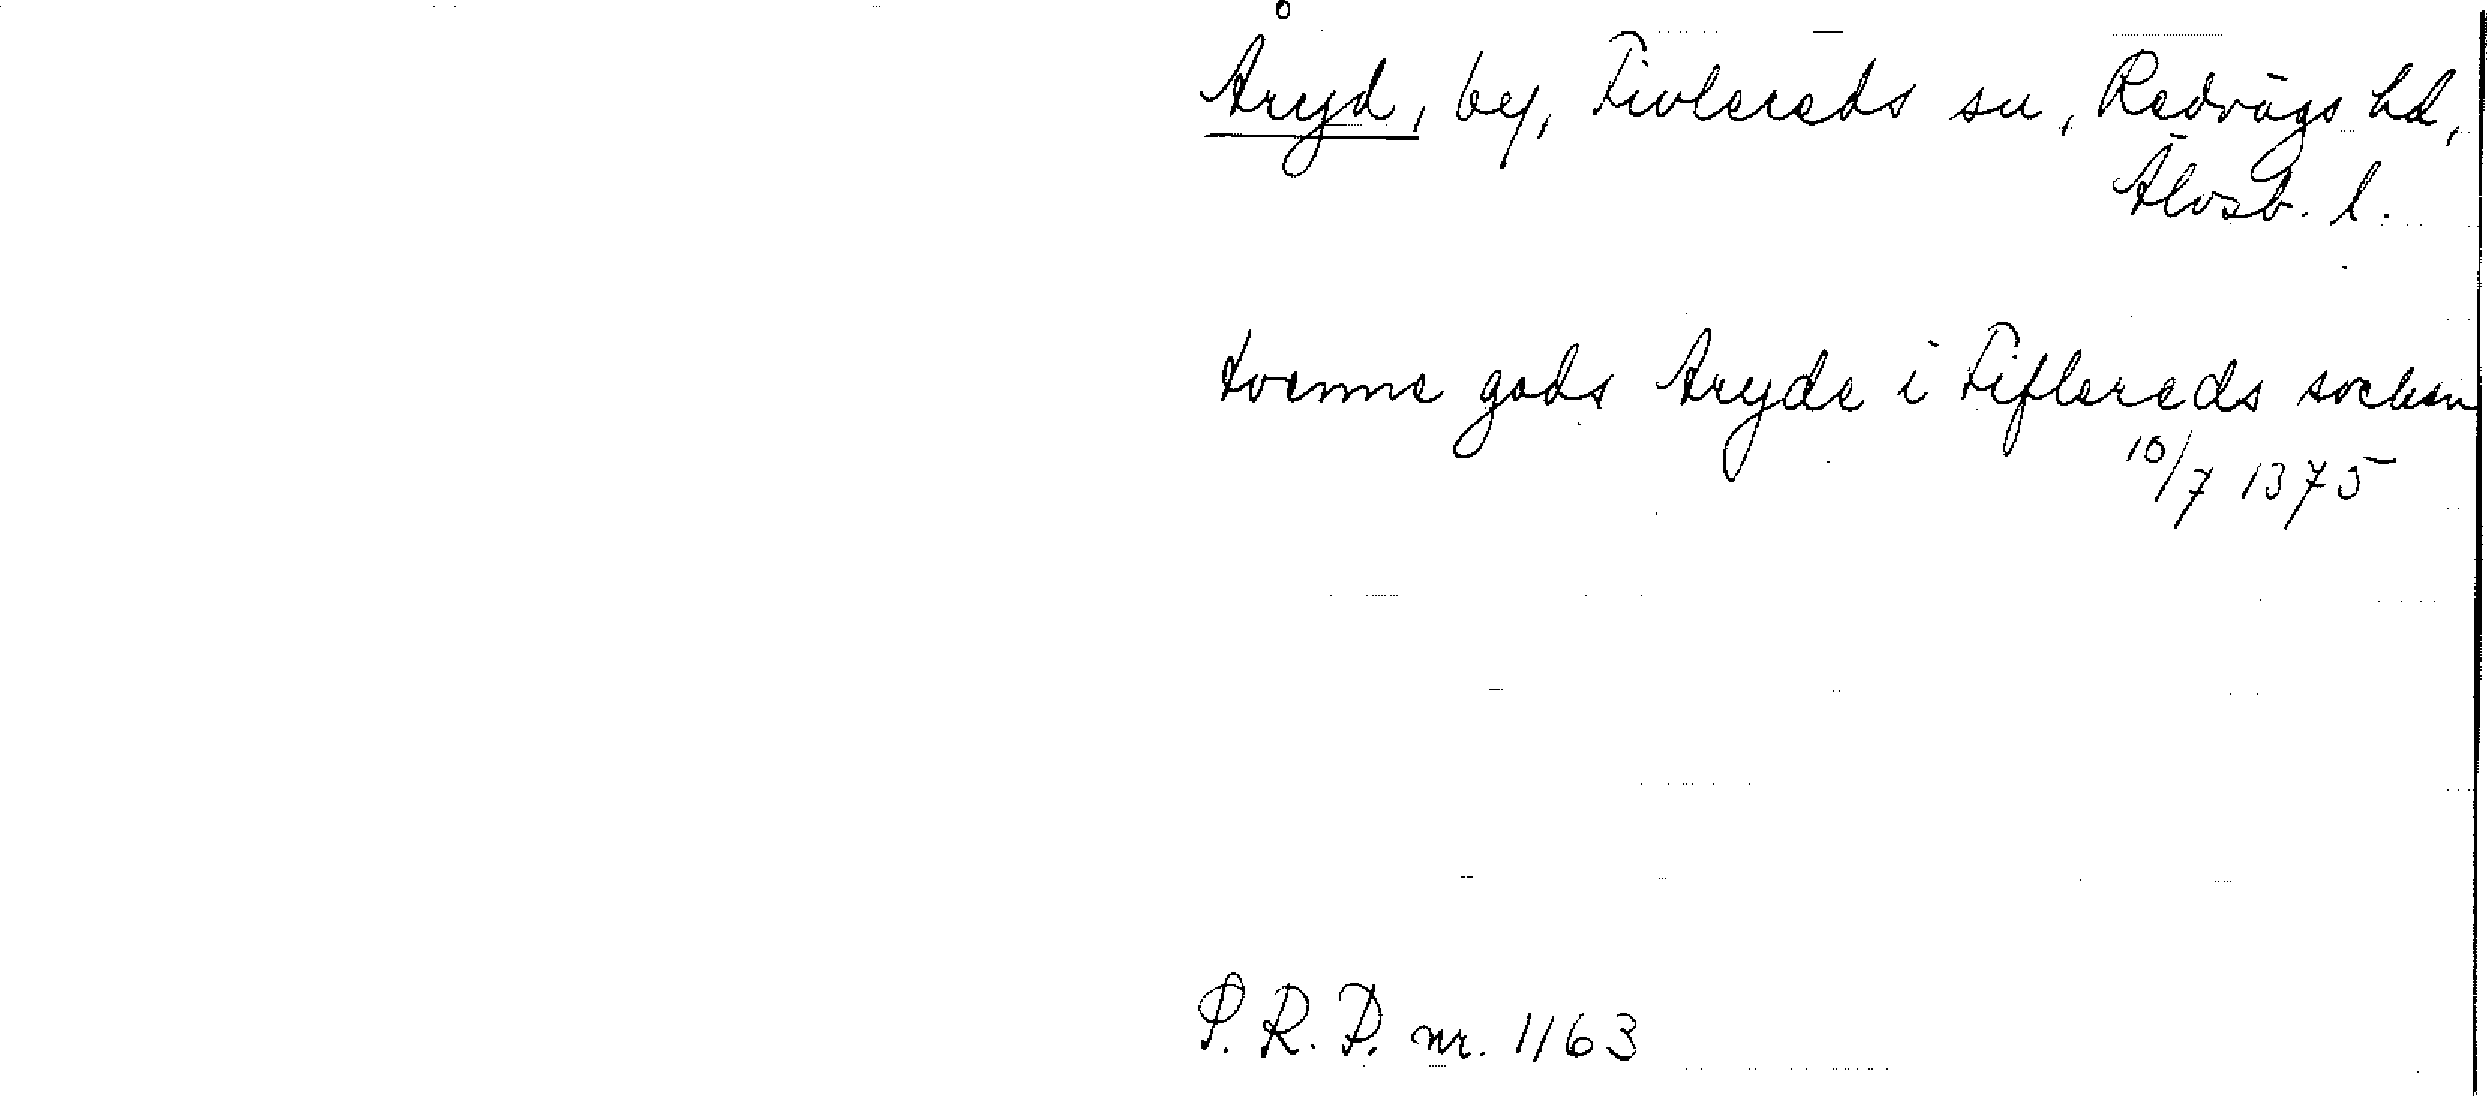 Åryd, by, Tivlereds sn, Redvägs hd,
Älvsb. l.
tvenne gods Aryde i Tiflereds socken
10/7 1375
P.R.P. nr. 1163